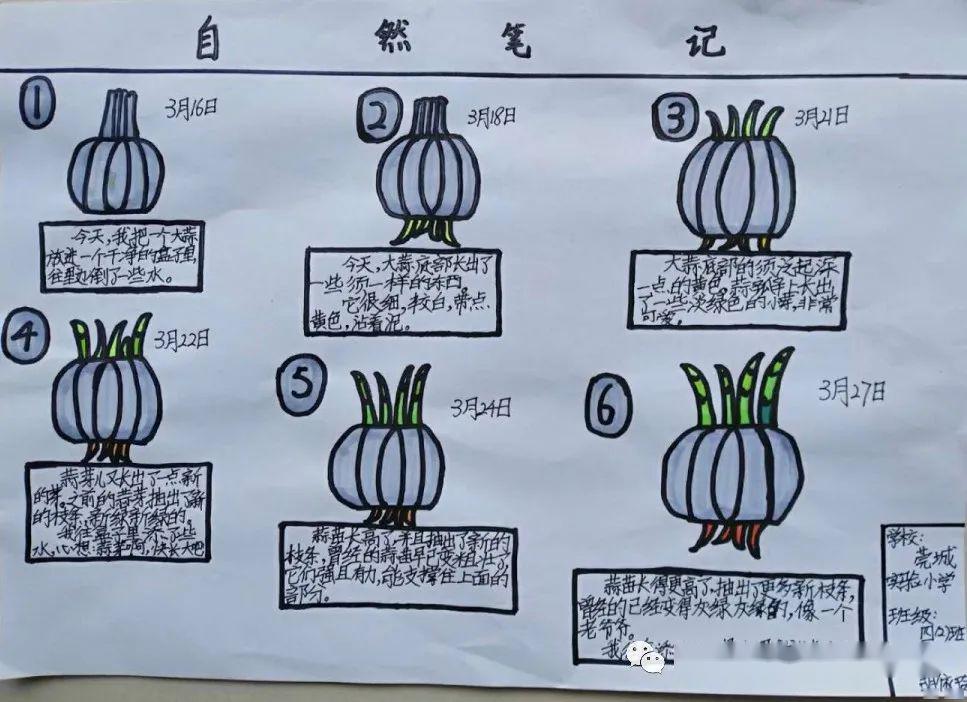 自然笔记
① 3月16日
今天,我把一个大蒜
放进一个干净的盘子里,
往里边倒了一些水。
② 3月18日
今天,大蒜底部长出了
一些须一样的东西。
它很细,较白,带点
黄色,沾着泥。
③ 3月21日
大蒜底部的须泛起深
一点的黄色。蒜头上长出
了一些淡绿色的小芽,非常
可爱。
④ 3月22日
蒜芽儿又长出了一点新
的芽。之前的蒜芽抽出了新
的枝条,新绿新绿的。
我往盘子里添了些
水,心想:蒜苗啊,快长大吧
⑤ 3月24日
蒜苗长高了,并且抽出了新的
枝条,曾经的蒜苗早已变粗壮了。
它们强且有力,能支撑住上面的
部分。
⑥ 3月27日
蒜苗长得更高了,抽出了更多新枝条,
曾经的已经变得灰绿灰绿的,像一个
老爷爷。
我
学校:
莞城
实验小学
班级:
四(2)班